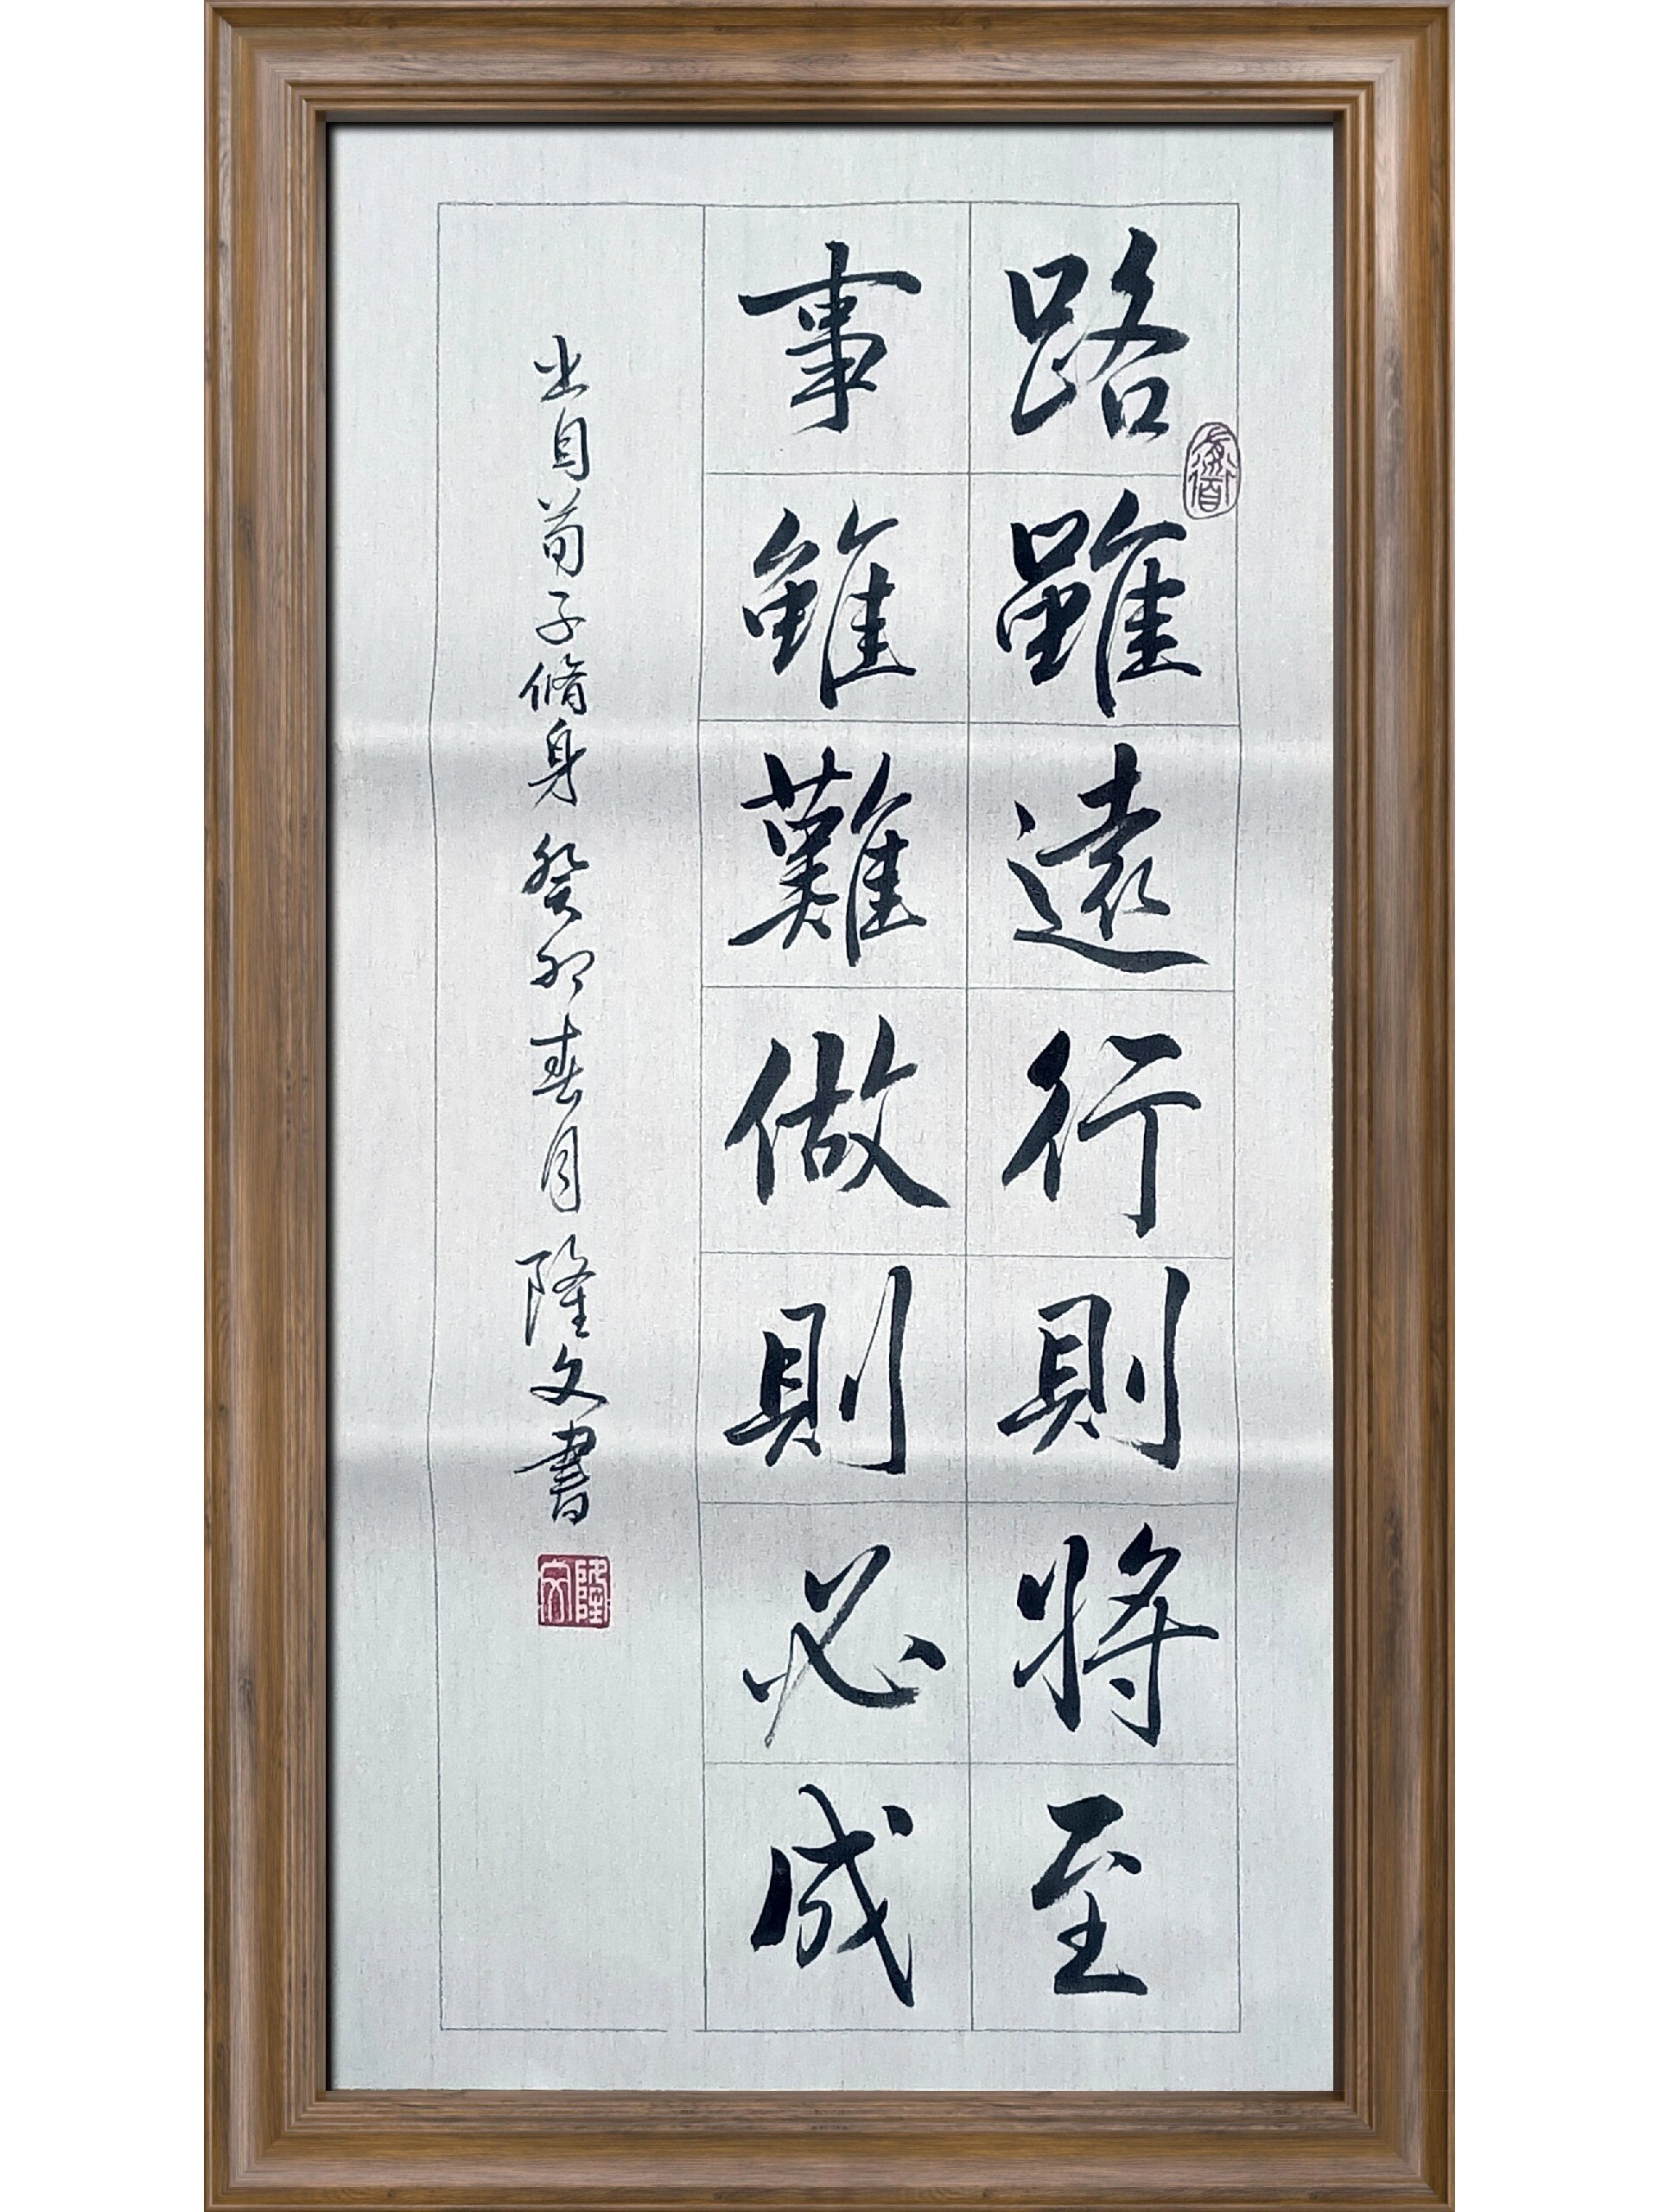 路雖遠行則將至
事雖難做則必成
出自荀子脩身 癸卯春月 隆文書
隆文